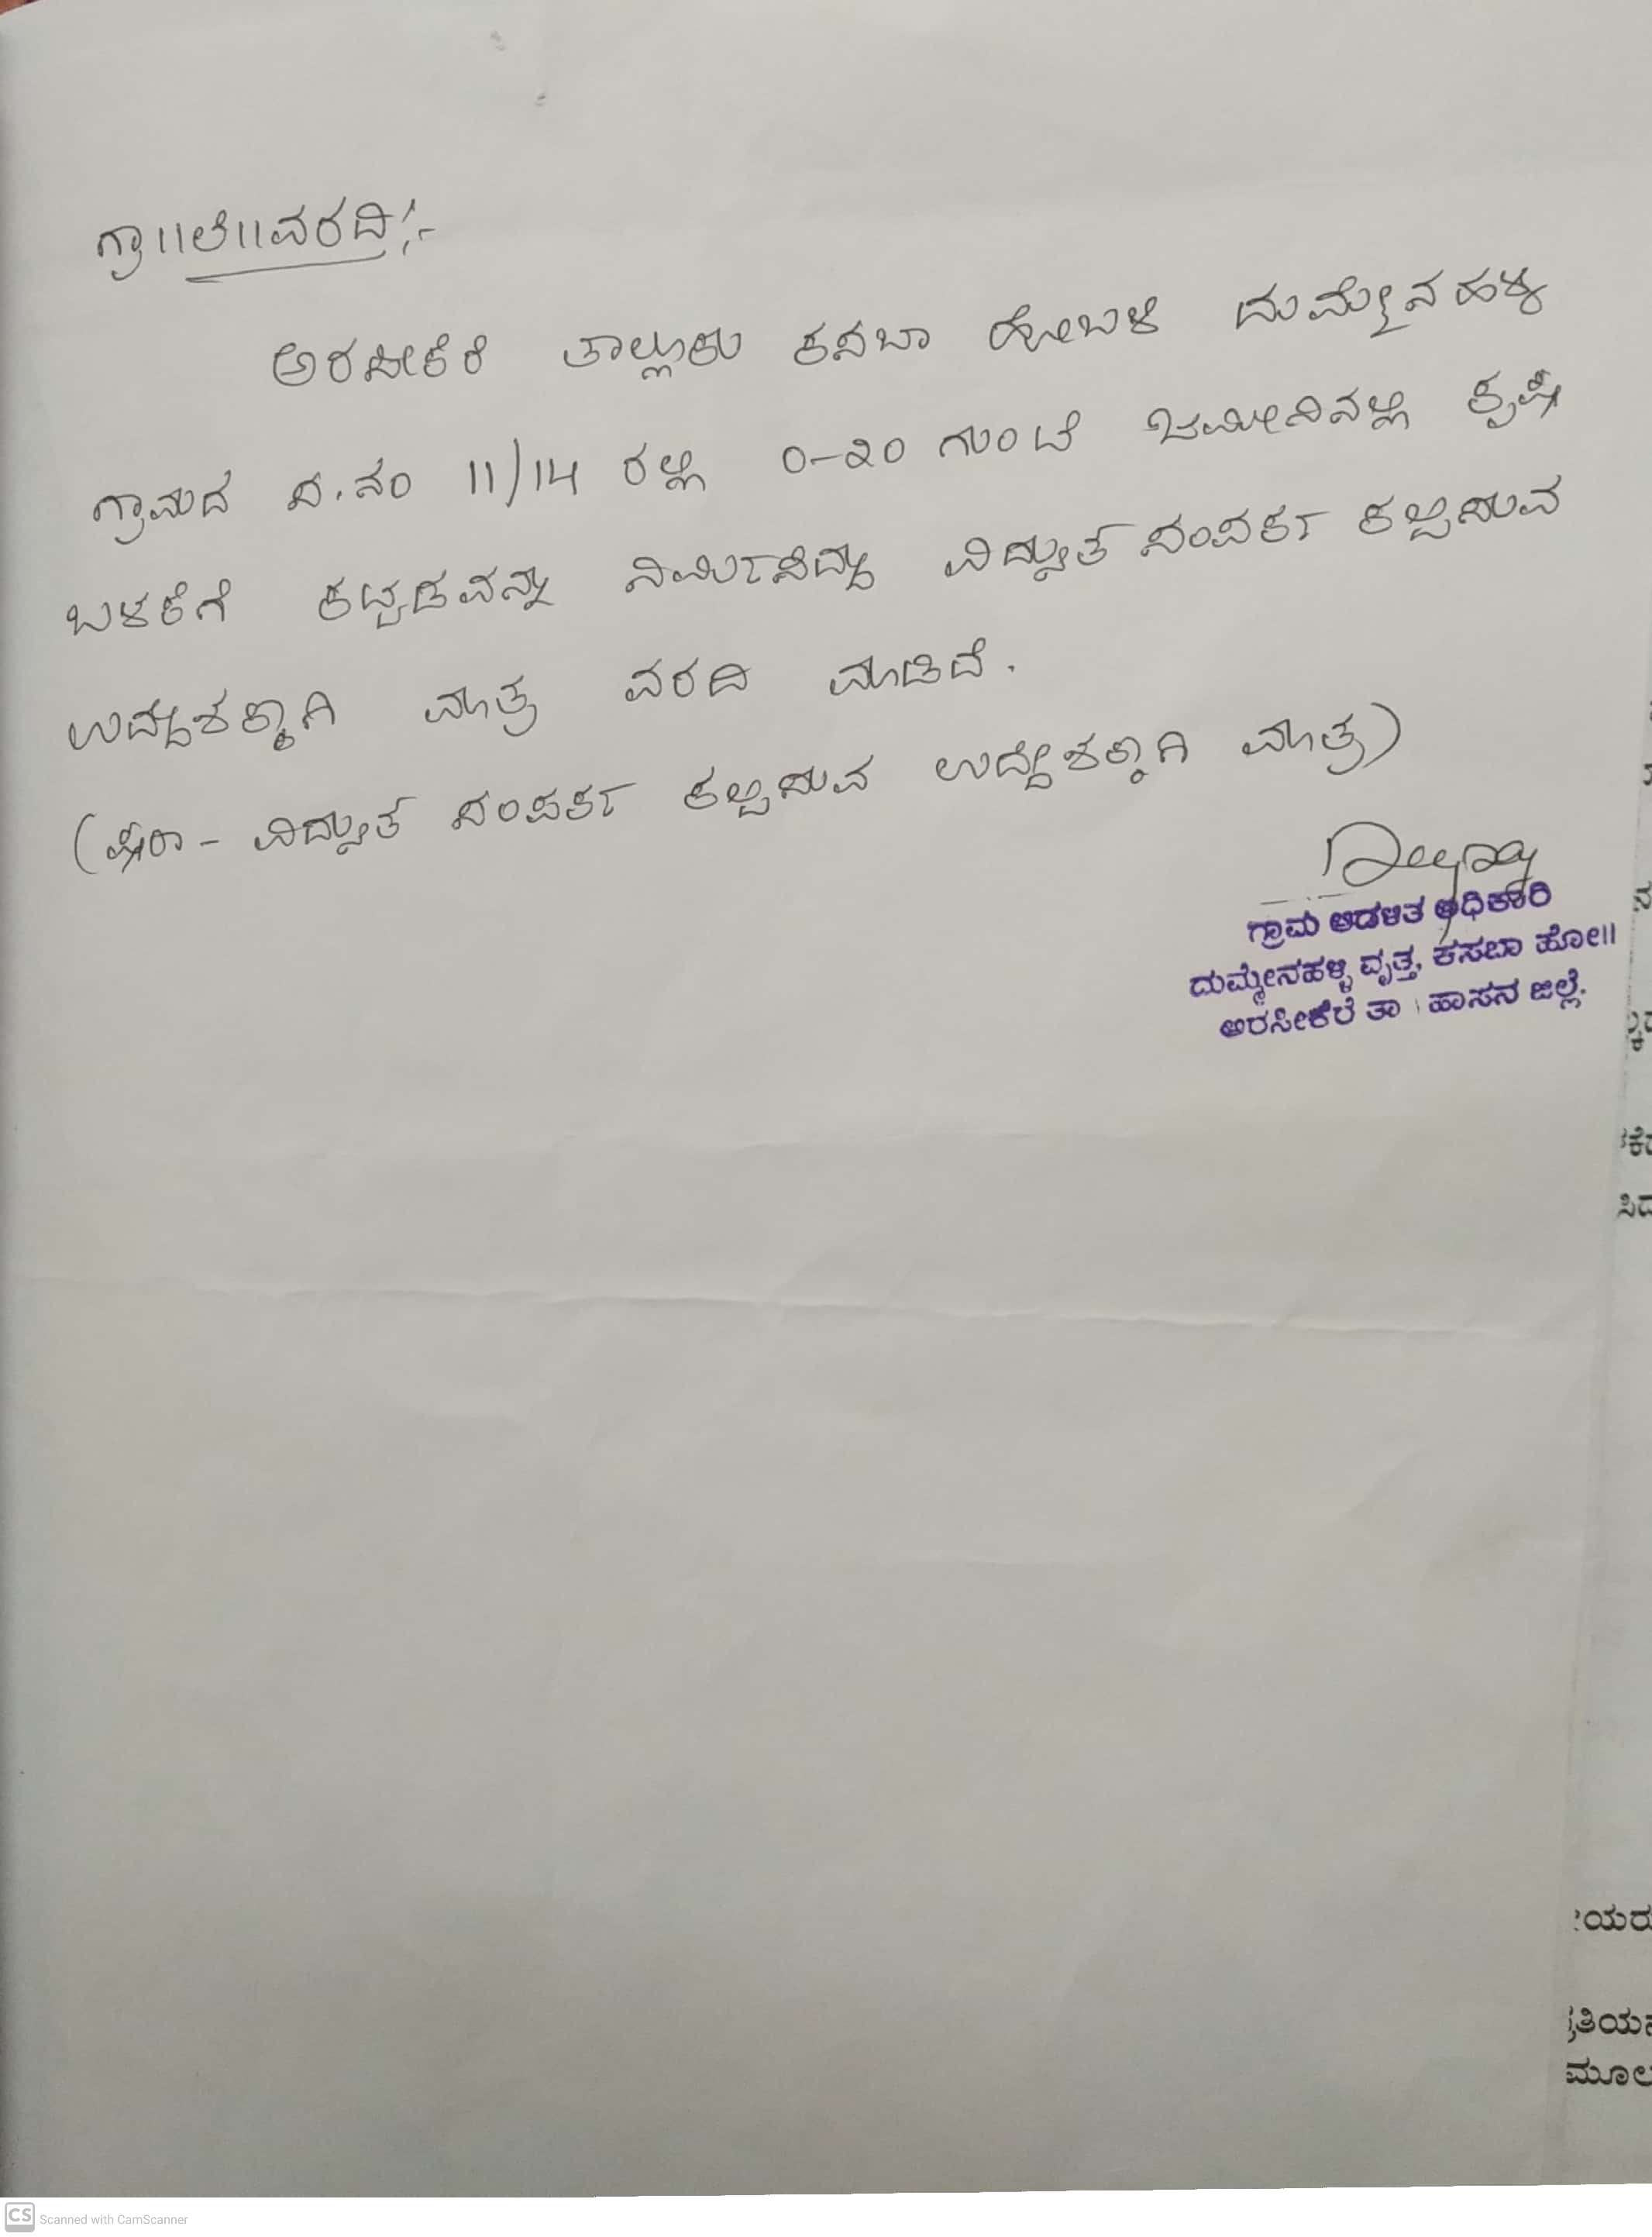 ಗ್ರಾ||ಲೆ||ವರದಿ:-
ಅರಸೀಕೆರೆ ತಾಲ್ಲೂಕು ಕಸಬಾ ಹೋಬಳಿ ದುಮ್ಮೇನಹಳ್ಳಿ
ಗ್ರಾಮದ ಸ.ನಂ 11/14 ರಲ್ಲಿ 0-೩೦ ಗುಂಟೆ ಜಮೀನಿನಲ್ಲಿ ಕೃಷಿ
ಬಳಕೆಗೆ ಕಟ್ಟಡವನ್ನು ನಿರ್ಮಿಸಿದ್ದು ವಿದ್ಯುತ್ ಸಂಪರ್ಕ ಕಲ್ಪಿಸುವ
ಉದ್ದೇಶಕ್ಕಾಗಿ ಮಾತ್ರ ವರದಿ ಮಾಡಿದೆ.
(ಷರಾ - ವಿದ್ಯುತ್ ಸಂಪರ್ಕ ಕಲ್ಪಿಸುವ ಉದ್ದೇಶಕ್ಕಾಗಿ ಮಾತ್ರ)
ಗ್ರಾಮ ಆಡಳಿತ ಅಧಿಕಾರಿ
ದುಮ್ಮೇನಹಳ್ಳಿ ವೃತ್ತ, ಕಸಬಾ ಹೋ||
ಅರಸೀಕೆರೆ ತಾ| ಹಾಸನ ಜಿಲ್ಲೆ.
CS Scanned with CamScanner